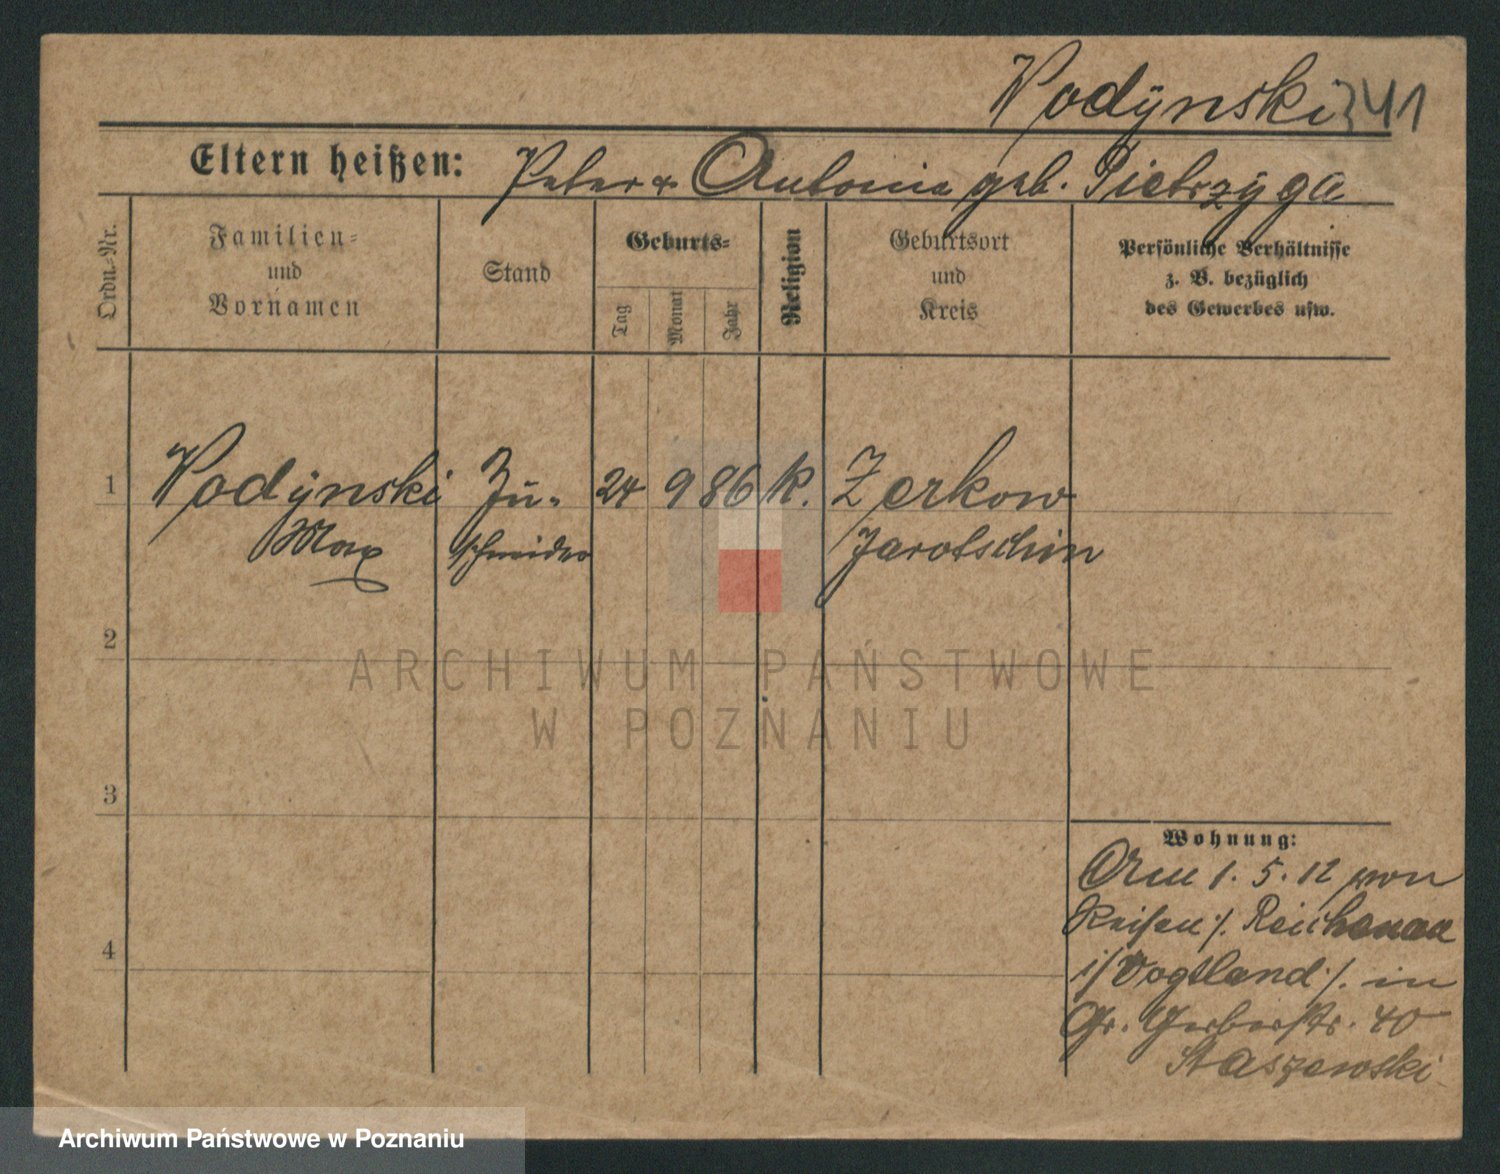 Wodÿnski 341
Eltern heißen: Peter & Antonie geb. Pietrzÿga
Ordn.-Nr.
Familien-
und
Vornamen
Stand
Geburts-
Tag
Monat
Jahr
Religion
Geburtsort
und
Kreis
Persönliche Verhältnisse
z. B. bezüglich
des Gewerbes usw.
1 Wodÿnski Zu- 24 9 86 k. Zerkow
Max schneider Jarotschin
2
ARCHIWUM PAŃSTWOWE
W POZNANIU
3
Wohnung:
Am 1. 5. 12 von
Reichenau
4
i/Vogtland ./. in
Gr. Gerberstr. 40
Staszewski
Archiwum Państwowe w Poznaniu